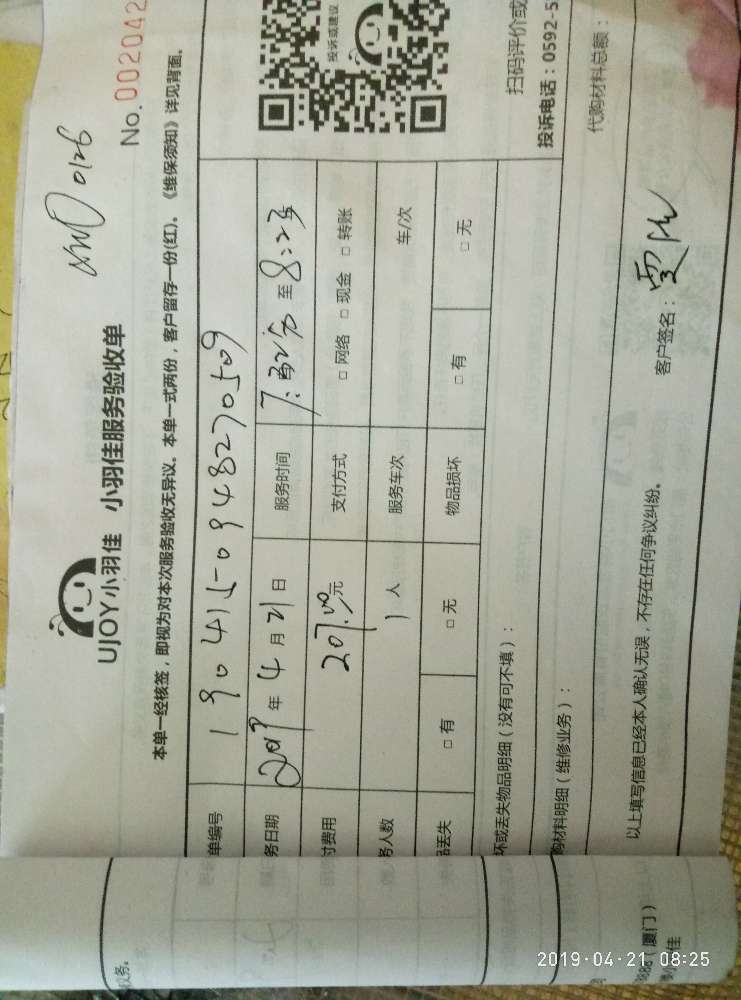 No. 002042
0126
UJOY小羽佳 小羽佳服务验收单
本单一经核签，即视为对本次服务验收无异议。本单一式两份，客户留存一份(红)。《维保须知》详见背面。
单编号 190415-0948270509
务日期 2019 年 4 月 21 日 服务时间 至 8:23
付费用 207.00 元 支付方式 □ 网络 □ 现金 □ 转账
务人数 1 人 服务车次 车/次
品丢失 □ 有 □ 无 物品损坏 □ 有 □ 无
坏或丢失物品明细（没有可不填）：
购材料明细（维修业务）：
代购材料总额：
投诉或建议
扫码评价或
投诉电话：0592-5
以上填写信息已经本人确认无误，不存在任何争议纠纷。
客户签名：
议务。
（厦门）
佳
2019-04-21 08:25